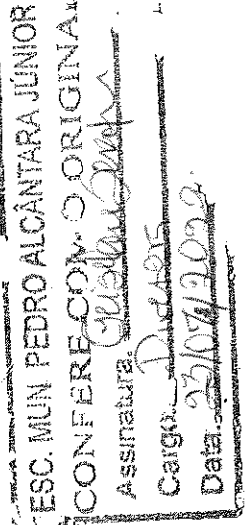 ESC. MUN. PEDRO ALCÂNTARA JÚNIOR
CONFERE COM O ORIGINAL
Assinatura:
Cargo: Diretor
Data: 23/07/2022